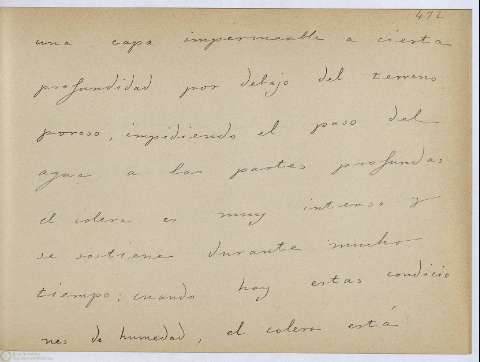 472
una capa impermeable a cierta
profundidad por debajo del terreno
poroso, impidiendo el paso del
agua a las partes profundas
el cólera es muy intenso y
se sostiene durante mucho
tiempo; cuando hay estas condicio
nes de humedad, el colera está